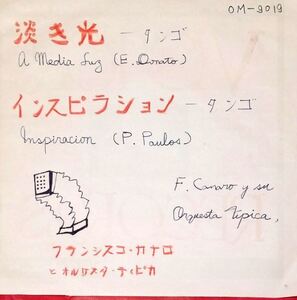 OM-9019
淡き光 ータンゴ
A Media Luz (E. Donato)
インスピラション ータンゴ
Inspiracion (P. Paulos)
F. Canaro y su
Orquesta Típica,
フランシスコ・カナロ
と オルケスタ・ティピカ